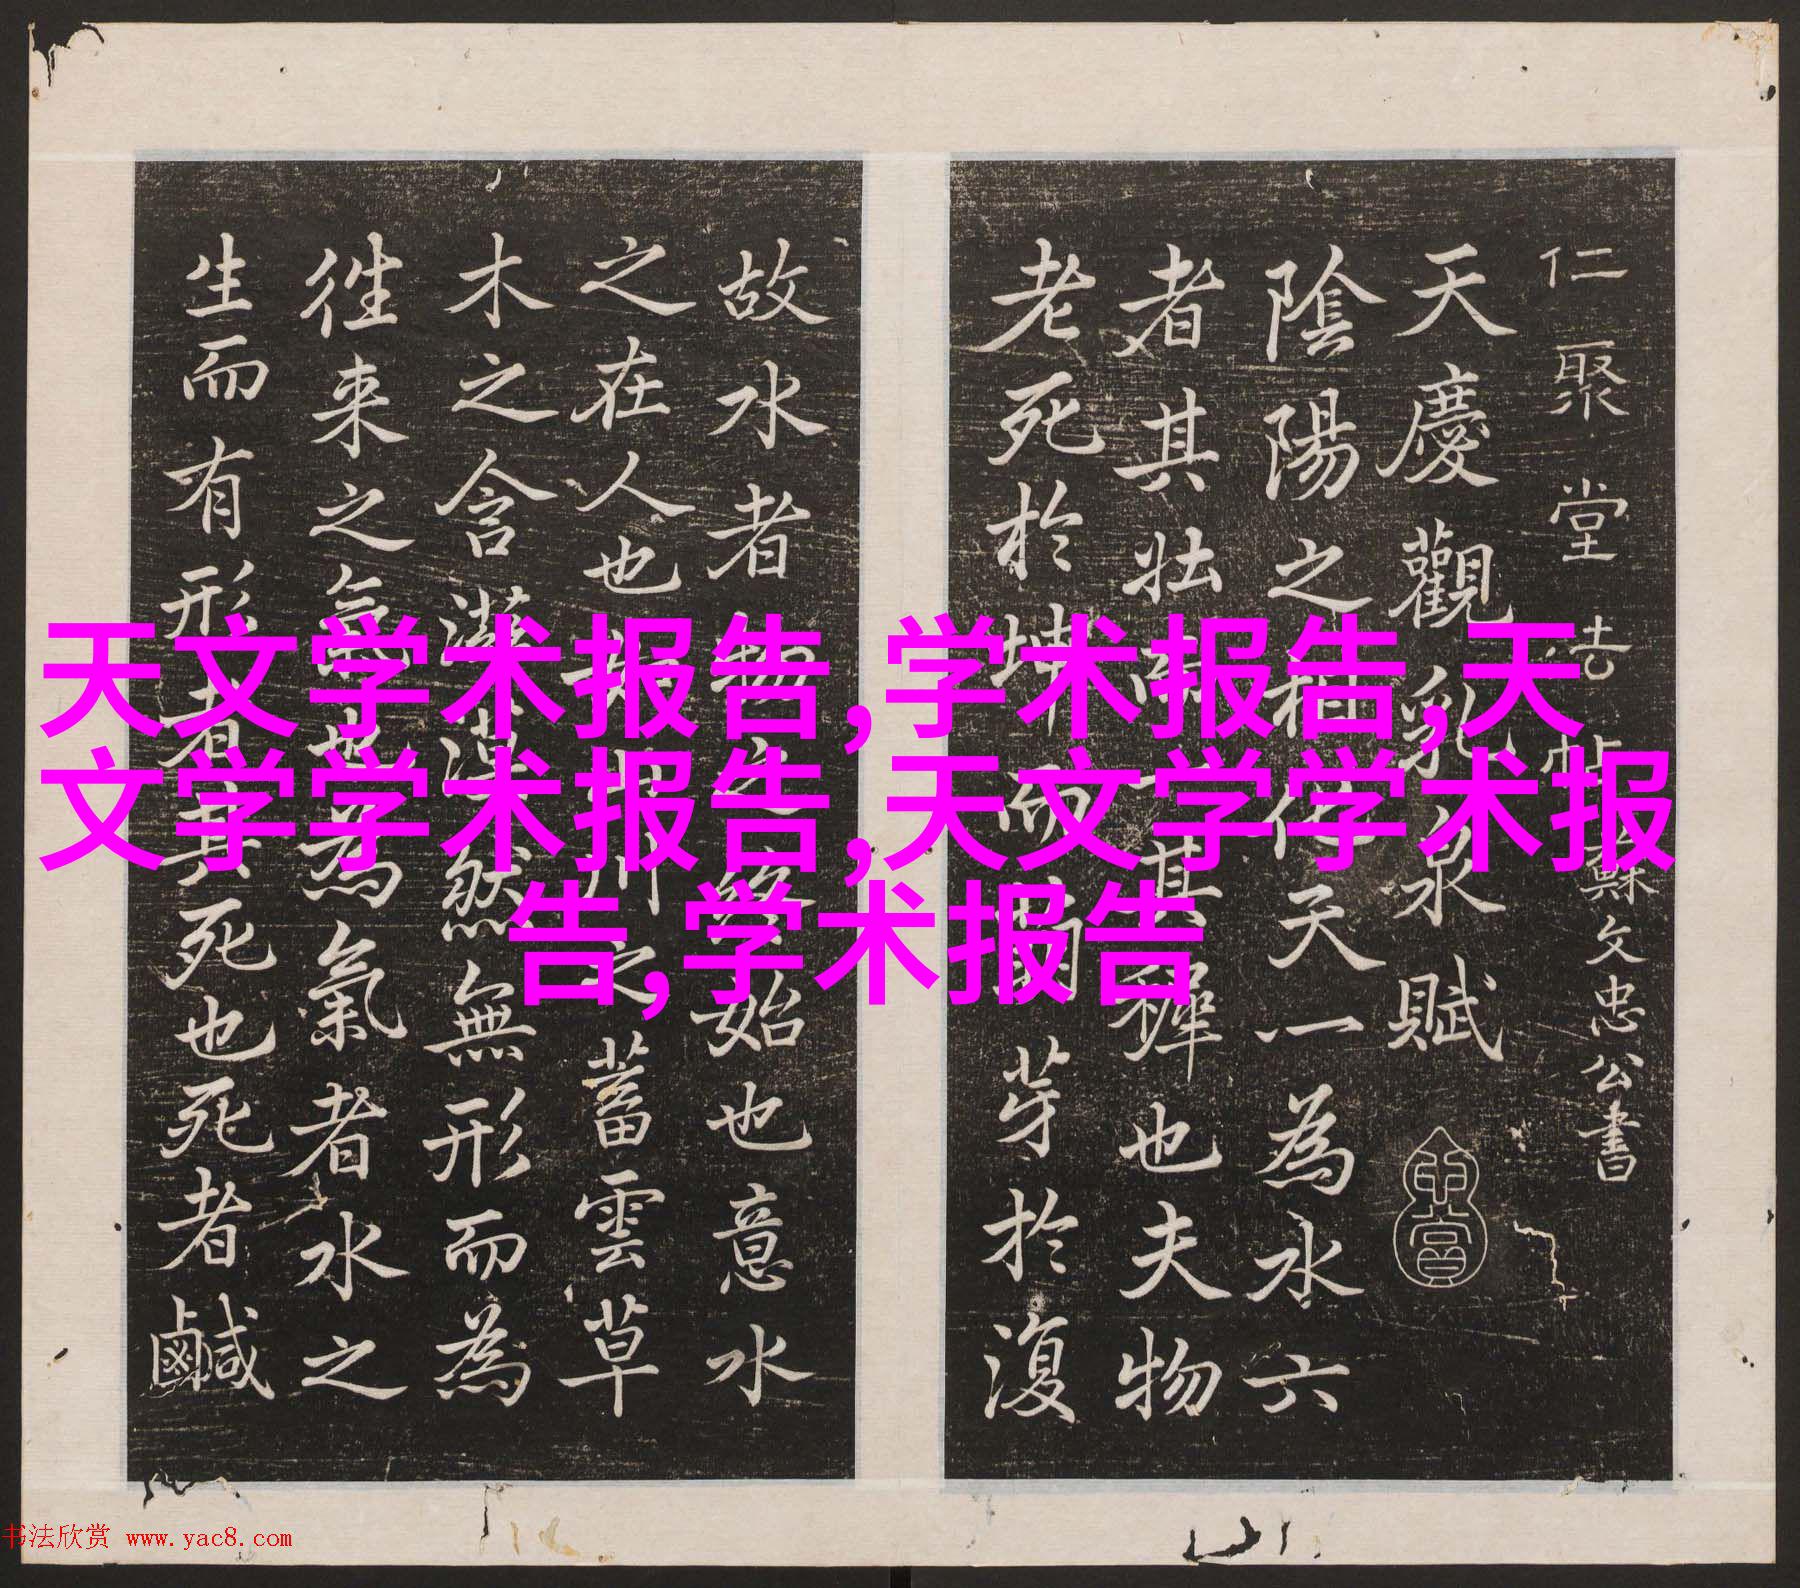 仁聚堂法帖 蘇文忠公書
天慶觀乳泉賦
陰陽之相化天一為水六
者其壯而一其穉也夫物
老死於坤而萌芽於復
故水者物之終始也意水
之在人也如山川之蓄雲草
木之含滋漠然無形而為
往来之氣也為氣者水之
生而有形者其死也死者鹹
天文学术报告,学术报告,天
文学学术报告,天文学学术报
告,学术报告
书法欣赏 www.yac8.com